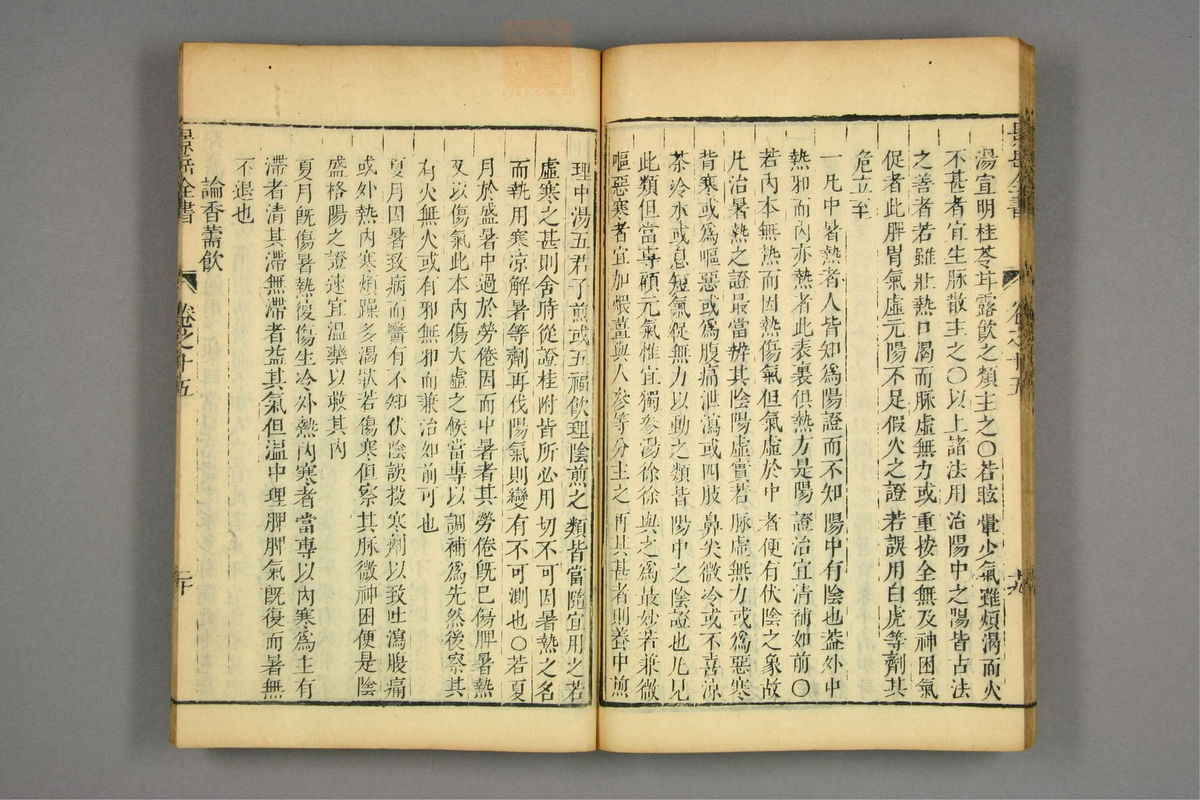 湯宣明桂苓甘露飲之類主之〇若眩暈少氣雖煩渴而火
不甚者宜生脉散主之〇以上諸法用治陽中之陽皆古法
之善者若雖壯熱口渴而脉虛無力或重按全無及神困氣
促者此脾胃氣虛元陽不足假火之證若誤用白虎等劑其
危立至
一凡中暑熱者人皆知爲陽證而不知陽中有陰也葢外中
熱邪而內亦熱者此表裏俱熱方是陽證治宜清補如前〇
若內本無熱而因熱傷氣但氣虛於中者便有伏陰之象故
凡治暑熱之證最當辨其陰陽虛實若脉虛無力或爲惡寒
背寒或爲嘔惡或爲腹痛泄瀉或四肢鼻尖微冷或不喜凉
茶冷水或息短氣促無力以動之類皆陽中之陰證也凡見
此類但當專顧元氣惟宜獨參湯徐徐與之爲最妙若兼微
嘔惡寒者宜加煨薑與人參等分主之再其甚者則養中煎
理中湯五君子煎或五福飲理陰煎之類皆當隨宜用之若
虛寒之甚則舍時從證桂附皆所必用切不可因暑熱之名
而執用寒凉解暑等劑再伐陽氣則變有不可測也〇若夏
月於盛暑中過於勞倦因而中暑者其勞倦旣已傷脾暑熱
又以傷氣此本內傷大虛之候當專以調補爲先然後察其
有火無火或有邪無邪而兼治如前可也
夏月因暑致病而醫有不知伏陰誤投寒劑以致吐瀉腹痛
或外熱內寒煩躁多渴狀若傷寒但察其脉微神困便是陰
盛格陽之證速宜温藥以救其內
夏月旣傷暑熱復傷生冷外熱內寒者當專以內寒爲主有
滯者清其滯無滯者益其氣但温中理脾脾氣旣復而暑無
不退也
論香薷飲
景岳全書
卷之十五
二十